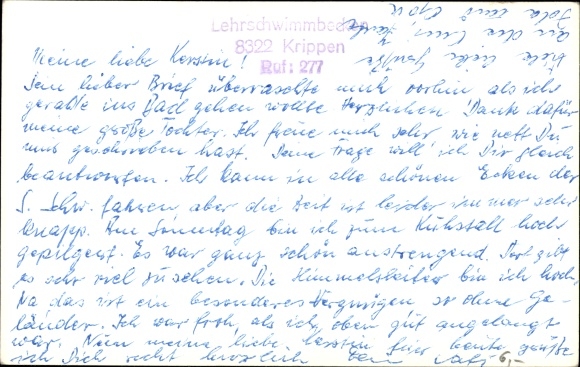 Lehrschwimmbecken
8322 Krippen
Ruf: 277
Meine liebe Kerstin!
Dein lieber Brief überraschte mich vorhin als ich
gerade ins Bad gehen wollte. Herzlichen Dank dafür
meine große Tochter. Ich freue mich sehr, wie nett Du
uns geschrieben hast. Deine Frage will ich Dir gleich
beantworten. Ich kann in alle schönen Ecken der
S. Schw. fahren aber die Zeit ist leider immer sehr
knapp. Am Sonntag bin ich zum Kuhstall hoch
gepilgert. Es war ganz schön anstrengend. Dort gibt
es sehr viel zu sehen. Die Himmelsleiter bin ich hoch.
Na das ist ein besonderes Vergnügen so ohne Ge-
länder. Ich war froh, als ich oben gut angelangt
war. Nun meine liebe Kerstin für heute grüße
ich Dich recht herzlich Dein Vati
6,-
Viele liebe Grüße
an die